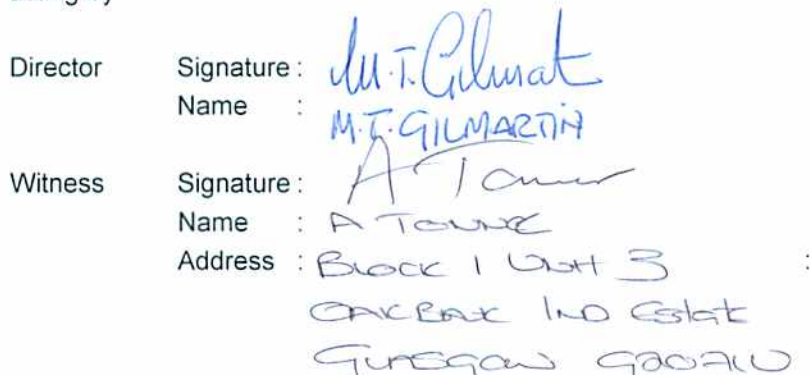 Director Signature : M.T. Gilmart
Name : M.T. GILMARTIN
Witness Signature : A
Name : A
Address : BLOCK 1 UNIT 3 :
OAKBANK IND Estate
GLASGOW G20